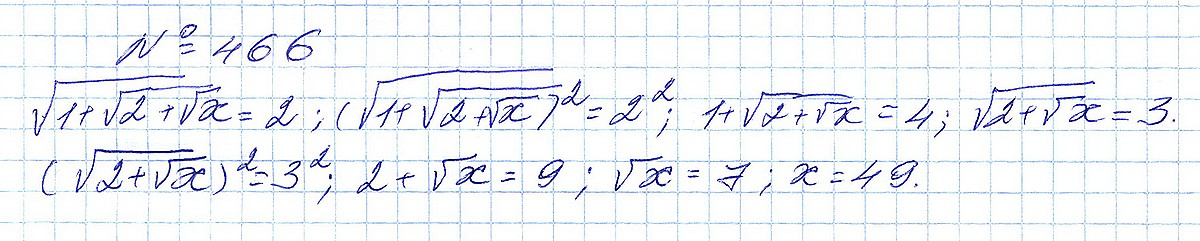 № 466
√(1+√(2+√x)) = 2 ; (√(1+√(2+√x)))² = 2² ; 1+√(2+√x) = 4 ; √(2+√x) = 3.
(√(2+√x))² = 3² ; 2 + √x = 9 ; √x = 7 ; x = 49.